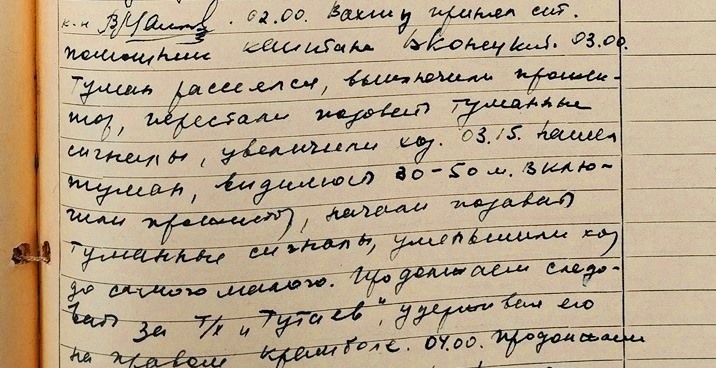 к.н В. 02.00. Вахту принял ст.
помошник капитана В. Конецкий. 03.00.
Туман рассеялся, выключили прожек-
тор, перестали подавать туманные
сигналы, увеличили ход. 03.15. нашел
туман, видимость 30-50 м. Вклю-
чили прожектор, начали подавать
туманные сигналы, уменьшили ход
до самого малого. Продолжаем следо-
вать за т/х "Тутаев", удерживая его
на правом крамболе. 04.00. продолжаем